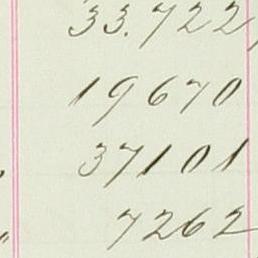 33.722
19670
37101
7262